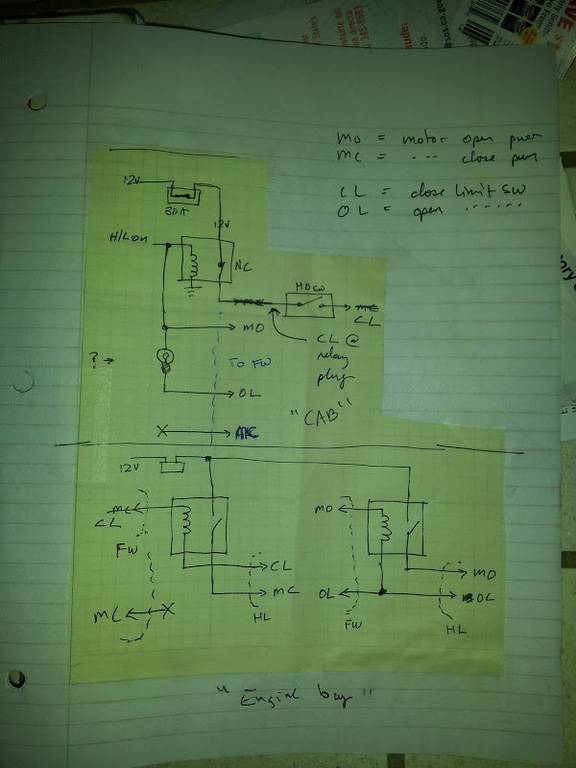 MO = motor open pwr
MC = " " " close pwr
CL = close limit sw
OL = open " " " " " "
12V
30A
12V
H/L ON
NC
HD sw
MC
CL
MO
CL @
relay
plug
? →
TO FW
OL
"CAB"
12V
MC
CL
FW
CL
MC
MC
HL
MO
MO
OL
OL
FW
HL
"Engine bay"